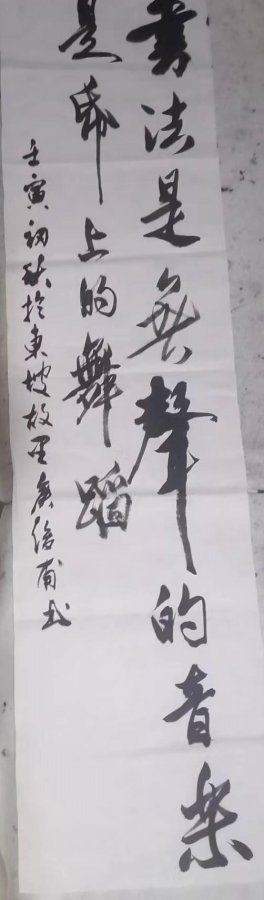 書法是無聲的音樂
是紙上的舞蹈
壬寅初秋於東坡故里俊甫书